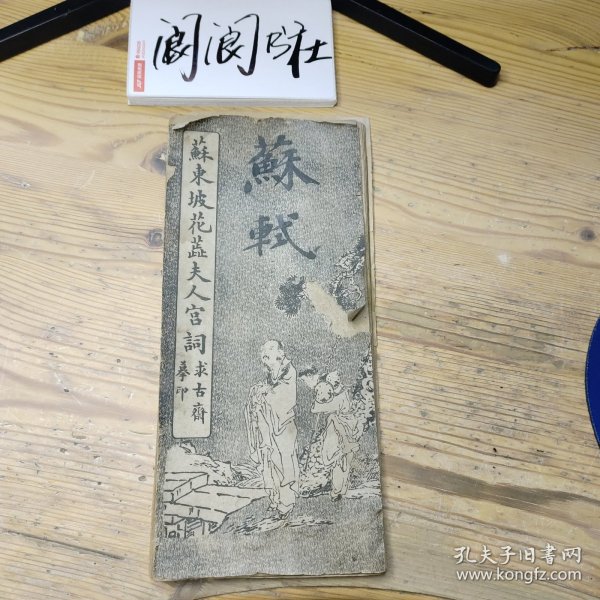 阆阆阝旺
蘇軾
蘇東坡花蕋夫人宮詞
求古齋
摹印
孔夫子旧書网
www.kongfz.com